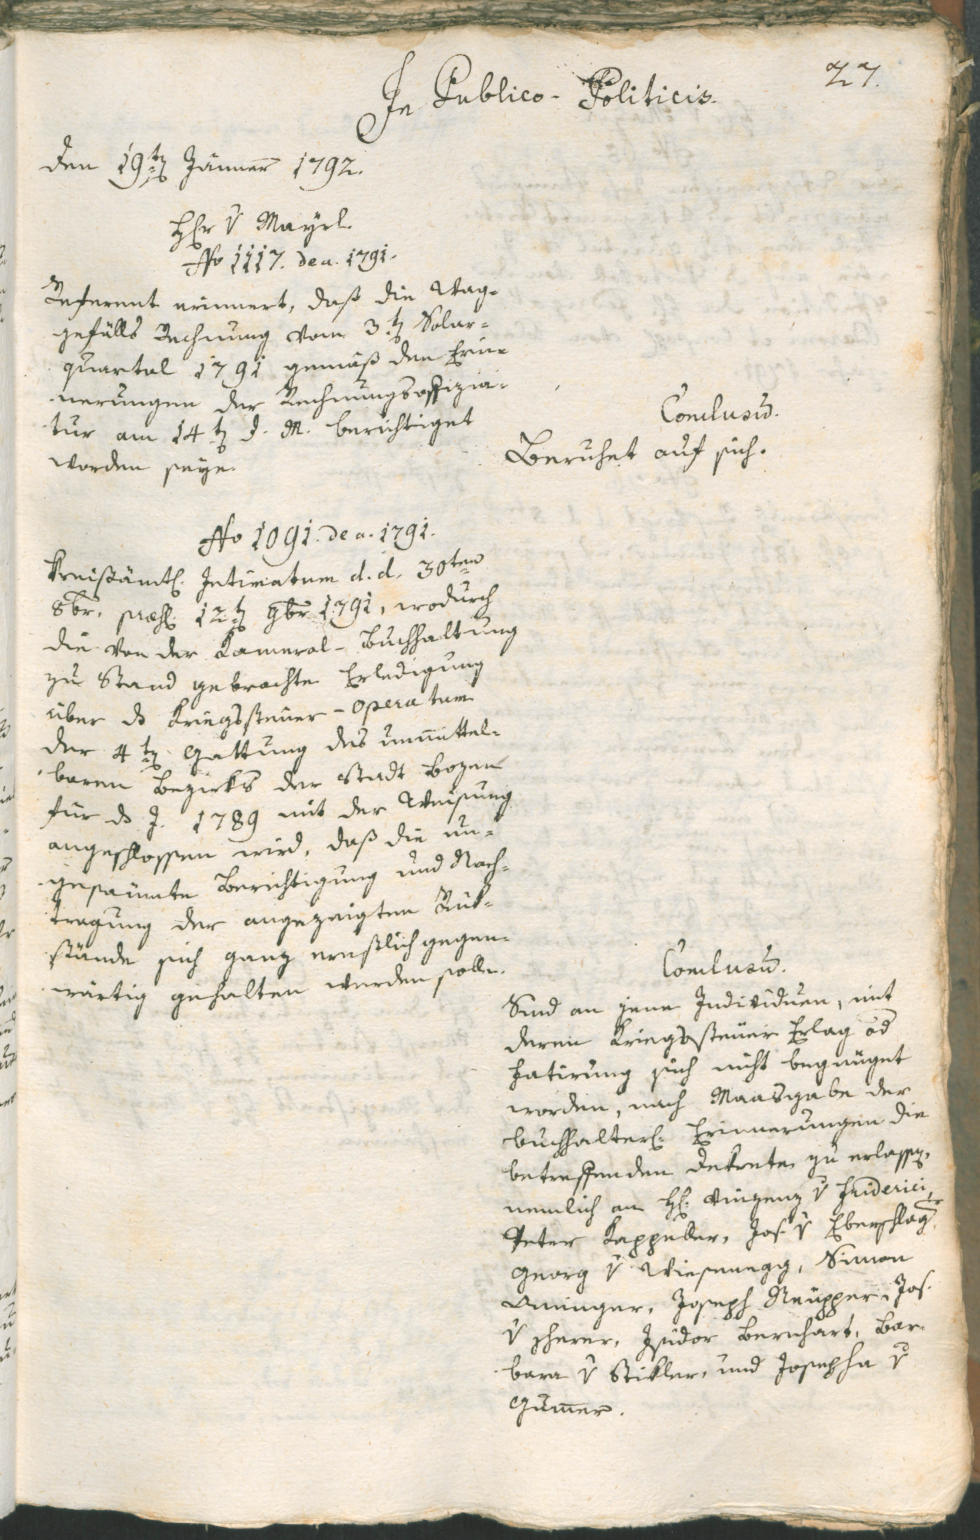 27.
In Publico-Politicis.
Den 19t Jänner 1792.
Hr v Mayrl.
No 1117. de a. 1791.
Referent erinnert, daß die Wag-
gefälls Rechnung vom 3t Solar-
quartal 1791 gemäß den Erin-
nerungen der Rechnungsoffizia-
tur am 14t d. M. berichtiget
worden seye.
Conclusum.
Beruhet auf sich.
No 1091. de a. 1791.
Kreisämtl. Intimatum d. d. 30ten
8br. 12t 9br 1791, wodurch
die von der Kameral-Buchhaltung
zu Stand gebrachte Erledigung
über Kriegssteuer-Operatum
der 4t Gattung des unmittel-
baren Bezirks der Stadt Bozen
für J. 1789 mit der Weisung
angeschlossen wird, daß die un-
gesäumte Berichtigung und Nach-
tragung der angezeigten Rük-
stände sich ganz ernstlich gegen-
wärtig gehalten werden solle.
Conclusum.
Sind an jene Individuen, mit
deren Kriegssteuer Erlag od
Fatirung sich nicht begnüget
worden, nach Maasgabe der
buchhalterl. Erinnerungen die
betreffenden Dekrete zu erlassen,
nemlich an H. Vinzenz v Friderici,
Peter Kappeller, Jos. v Eberschlager,
Georg v Wiesenegg, Simon
Aninger, Joseph Neupper, Jos.
v Zherer, Isidor Bernhart, Bar-
bara v Stikler, und Josepha v
Gummer.